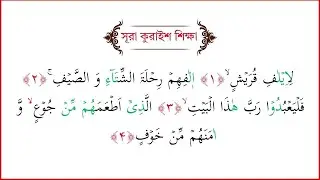 সূরা কুরাইশ শিক্ষা
لِاِيْلٰفِ قُرَيْشٍ ۙ﴿۱﴾ اٖلٰفِهِمْ رِحْلَةَ الشِّتَآءِ وَ الصَّيْفِ ۚ﴿۲﴾
فَلْيَعْبُدُوْا رَبَّ هٰذَا الْبَيْتِ ۙ﴿۳﴾ الَّذِیْۤ اَطْعَمَهُمْ مِّنْ جُوْعٍ ۙ وَّ
اٰمَنَهُمْ مِّنْ خَوْفٍ ﴿۴﴾